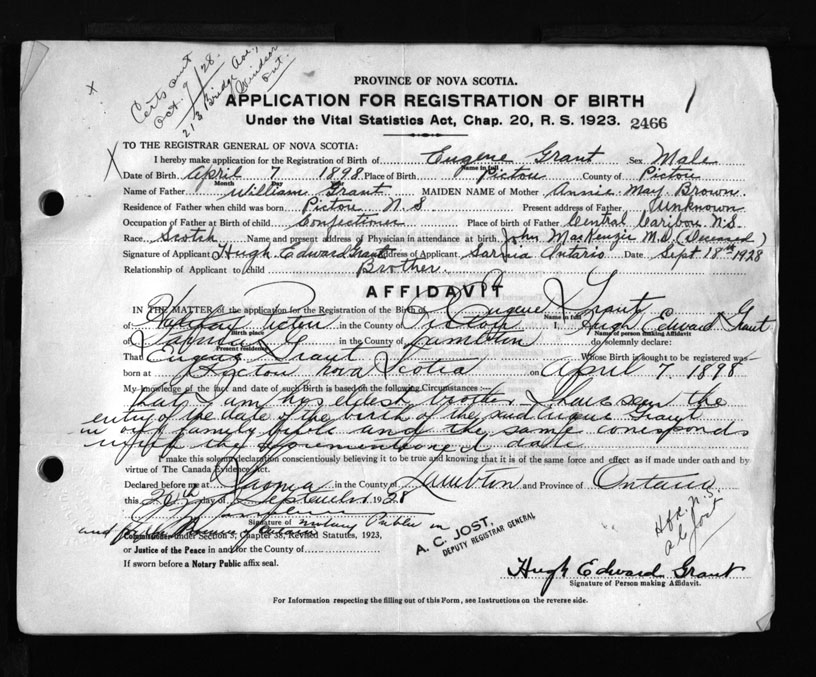 Certs sent
Oct. 9/28.
213 Bridge Ave.,
Windsor
Ont.
x
PROVINCE OF NOVA SCOTIA.
APPLICATION FOR REGISTRATION OF BIRTH
1
Under the Vital Statistics Act, Chap. 20, R. S. 1923. 2466
X
TO THE REGISTRAR GENERAL OF NOVA SCOTIA:
I hereby make application for the Registration of Birth of Eugene Grant Sex Male
Name in full
Date of Birth April 7 1898 Place of Birth Pictou County of Pictou
Month Day
Name of Father William Grant MAIDEN NAME of Mother Annie May Brown
Residence of Father when child was born Pictou N.S Present address of Father Unknown
Occupation of Father at Birth of child Confectioner Place of birth of Father Central Caribou N.S.
Race Scotch Name and present address of Physician in attendance at birth John MacKenzie M.D. (Deceased)
Signature of Applicant Hugh Edward Grant Address of Applicant Sarnia Ontario Date Sept 18th 1928
Relationship of Applicant to child Brother.
AFFIDAVIT
IN THE MATTER of the application for the Registration of the Birth of Eugene Grant
Name in full
of Halifax Pictou in the County of Pictou I, Hugh Edward Grant
Birth place Name of person making Affidavit
of Sarnia in the County of Lambton do solemnly declare:
Present residence
That Eugene Grant Whose Birth is sought to be registered was
born at Pictou Nova Scotia on April 7 1898
My knowledge of the fact and date of such Birth is based on the following Circumstances :—
that I am his eldest brother I have seen the
entry of the date of the birth of the said Eugene Grant
in our family bible and the same coresponds
with the aforementioned date
I make this solemn declaration conscientiously believing it to be true and knowing that it is of the same force and effect as if made under oath and by
virtue of The Canada Evidence Act.
Declared before me at Sarnia in the County of Lambton and Province of Ontario
this 20th day of September 1928
Signature of Notary Public in
and for Ontario
Commissioner under Section 5, Chapter 38, Revised Statutes, 1923,
or Justice of the Peace in and for the County of
If sworn before a Notary Public affix seal.
A. C. JOST.
DEPUTY REGISTRAR GENERAL
Hfx N.S
A C Jost
Hugh Edward Grant
Signature of Person making Affidavit.
For Information respecting the filling out of this Form, see Instructions on the reverse side.